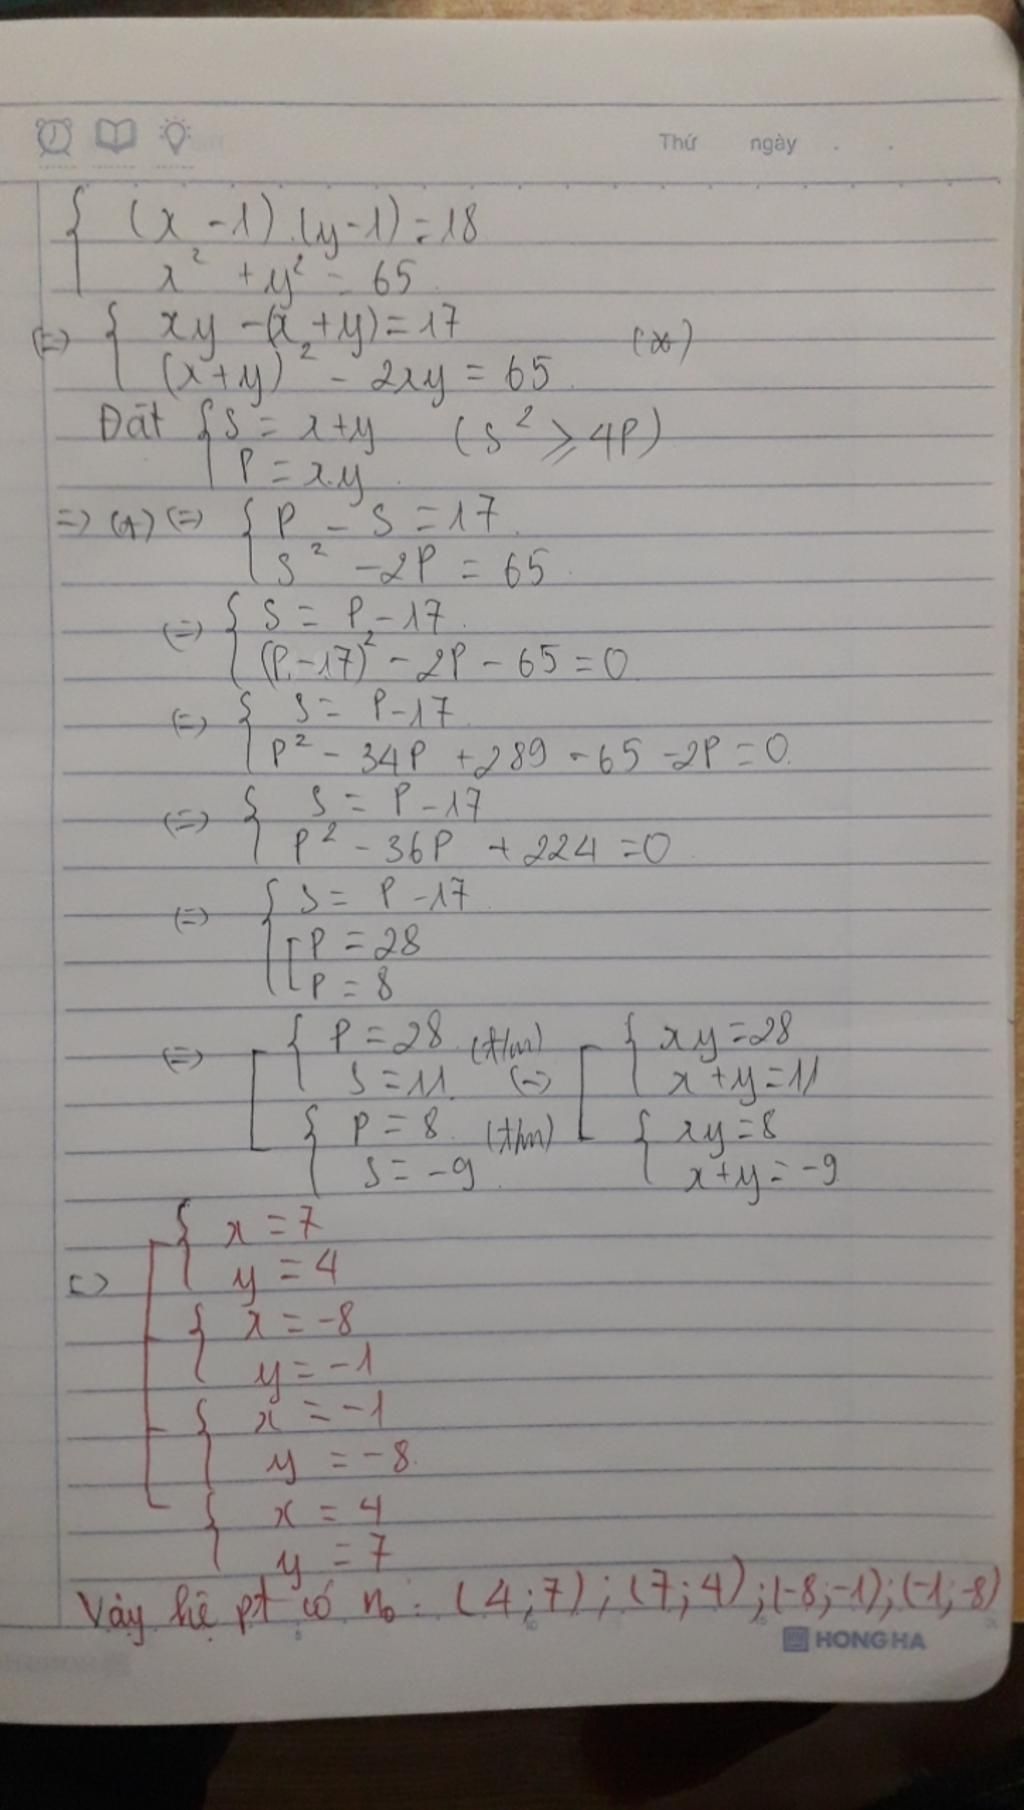 Thứ ngày . .
{ (x - 1).(y-1) = 18
x² + y² = 65
(=) { xy - (x+y) = 17 (*)
(x+y)² - 2xy = 65
Đăt { S = x+y (S² ⩾ 4P)
P = x.y
=> (*) (=) { P - S = 17
S² - 2P = 65
(=) { S = P - 17
(P-17)² - 2P - 65 = 0
(=) { S = P-17
P² - 34P + 289 - 65 - 2P = 0
(=) { S = P - 17
P² - 36P + 224 = 0
(=) { S = P - 17
[ P = 28
P = 8
(=) [ { P = 28 (t/m) (=) [ { xy = 28
S = 11 x+y = 11
{ P = 8 (t/m) { xy = 8
S = -9 x+y = -9
(=) [ { x = 7
y = 4
{ x = -8
y = -1
{ x = -1
y = -8
{ x = 4
y = 7
Vậy hệ pt có n₀ : (4;7) ; (7;4) ; (-8;-1) ; (-1;-8)
HONG HA